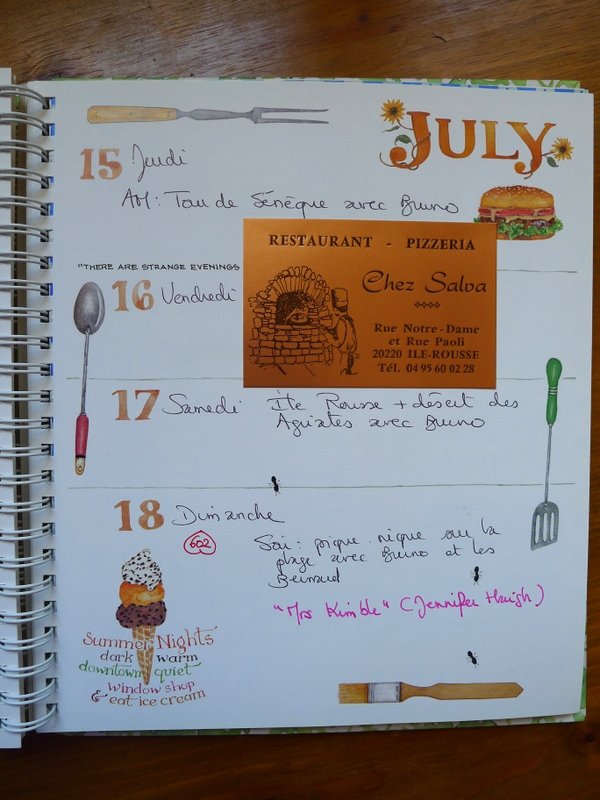 JULY
15 Jeudi
AM: Tour de Sénèque avec Bruno
"THERE ARE STRANGE EVENINGS
16 Vendredi
RESTAURANT - PIZZERIA
Chez Salva
Rue Notre-Dame
et Rue Paoli
20220 ILE-ROUSSE
Tél. 04 95 60 02 28
17 Samedi
Ile Rousse + désert des
Agriates avec Bruno
18 Dimanche
602
Soir: pique-nique sur la
plage avec Bruno et les
"Mrs Kimble" (Jennifer Haigh)
Summer Nights
dark warm
downtown quiet
window shop
& eat ice cream